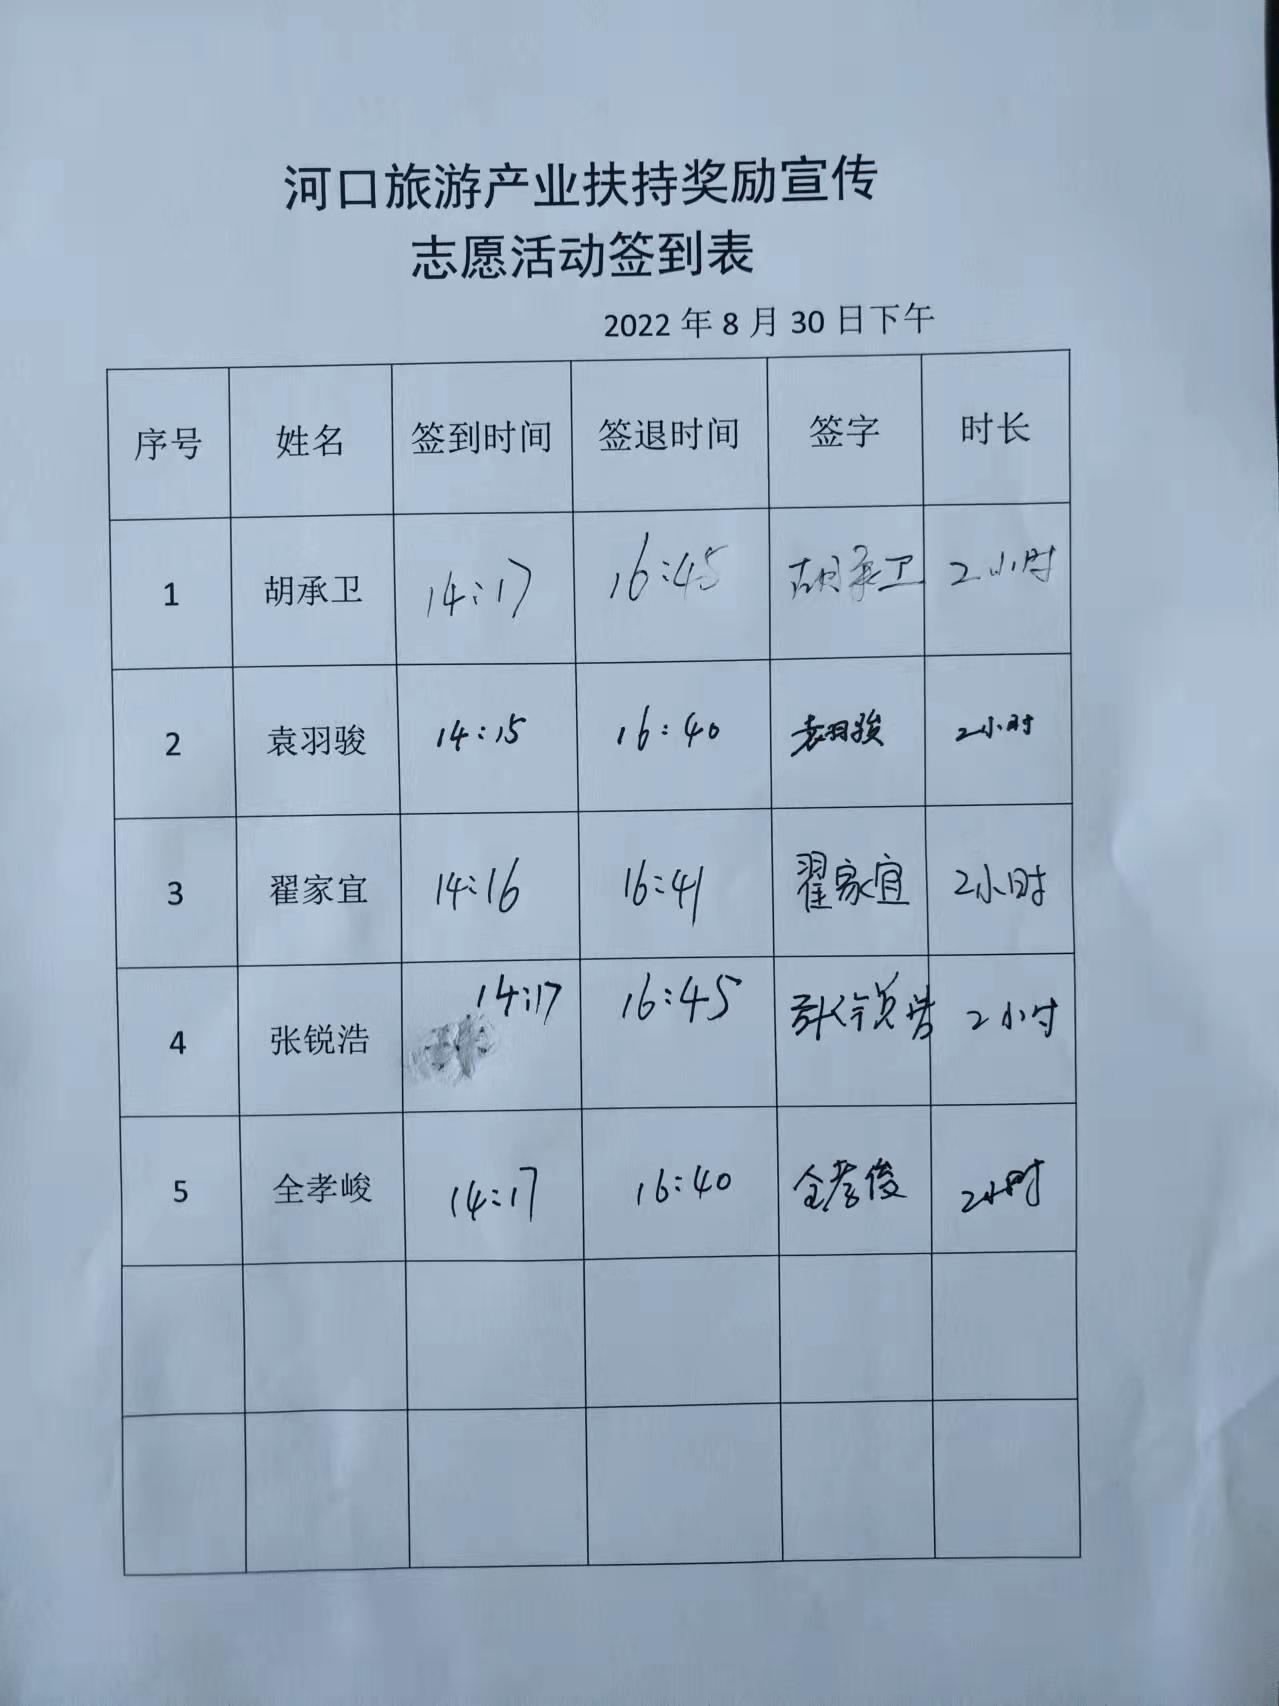 河口旅游产业扶持奖励宣传
志愿活动签到表
2022年8月30日下午
序号 姓名 签到时间 签退时间 签字 时长
1 胡承卫 14:17 16:45 胡承卫 2小时
2 袁羽骏 14:15 16:40 袁羽骏 2小时
3 翟家宜 14:16 16:41 翟家宜 2小时
4 张锐浩 14:17 16:45 张锐浩 2小时
5 全孝峻 14:17 16:40 全孝俊 2小时